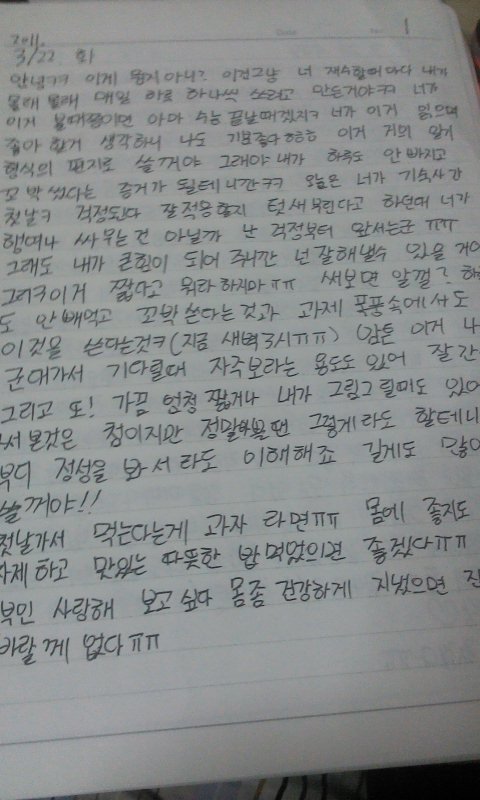 Date No 1
2011.
3/22 화
안녕ㅋㅋ 이게 뭔지 아니? 이건그냥 너 재수할때마다 내가
몰래 몰래 매일 하루 하나씩 쓰려고 만든거야ㅋㅋ 너가
이거 볼때쯤이면 아마 수능 끝날때겠지ㅋ 너가 이거 읽으며
좋아 할거 생각하니 나도 기분좋다ㅎㅎㅎ 이거 거의 일기
형식의 편지로 쓸꺼야 그래야 내가 하루도 안 빠지고
꼬박 썼다는 증거가 될테니깐ㅋㅋ 오늘은 너가 기숙사간
첫날ㅋ 걱정된다 잘적응할지 텃새부린다고 하던데 너가
행여나 싸우는건 아닐까 난 걱정부터 앞서는군 ㅠㅠ
그래도 내가 큰힘이 되어 주니깐 넌 잘해낼수 있을 거야
그리구이거 짧다고 뭐라 하지마ㅠㅠ 써보면 알껄? 하루
도 안빼먹고 꼬박 쓴다는것과 과제 폭풍속에서도
이것을 쓴다는것ㅋ (지금 새벽3시ㅠㅠ) (암튼 이거 나
군대가서 기다릴때 자주보라는 용도도 있어 잘 간
그리고 또! 가끔 엄청 짧거나 내가 그림그릴때도 있어
써본것은 첨이지만 정말 바쁠땐 그렇게라도 할테니
부디 정성을 봐서라도 이해해죠 길게도 많이
쓸꺼야!!
첫날가서 먹는다는게 과자 라면ㅠㅠ 몸에 좋지도
자제하고 맛있는 따뜻한 밥먹었으면 좋겠다ㅠㅠ
부인 사랑해 보고싶다 몸좀 건강하게 지냈으면 진
바랄께 없다ㅠㅠ